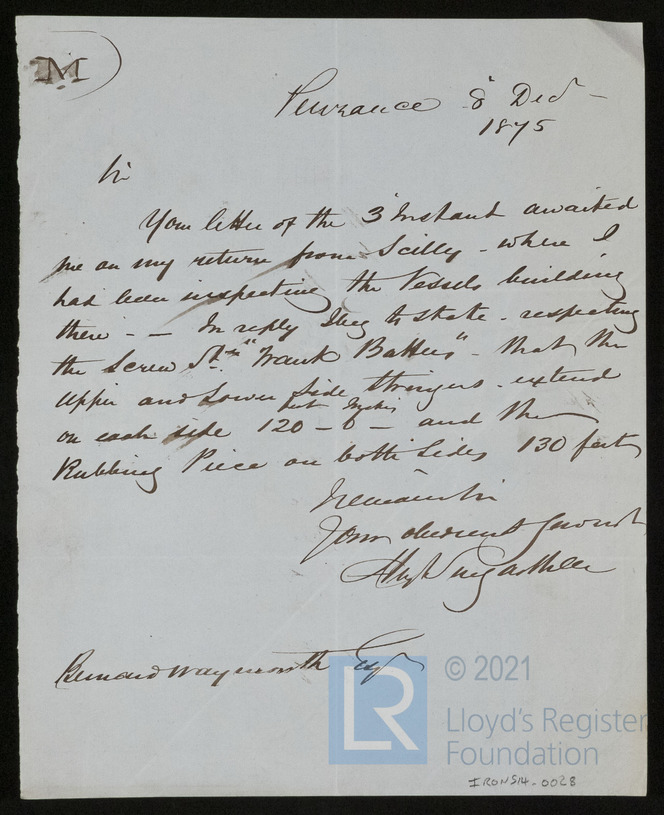 M
Penzance 8" Decr
1875
Sir
Your letter of the 3" Instant awaited
me on my return from Scilly - where I
had been inspecting the Vessels building
there - - In reply I beg to state - respecting
the Screw Str "Frank Batters" - that the
Upper and Lower Side Stringers - extend
feet Inches
on each side 120 - 6 - and the
Rubbing Piece on both Sides 130 feet
I remain Sir
Your obedient Servant
Bernard Waymouth Esqr
LR
© 2021
Lloyd's Register
Foundation
IRONS14-0028